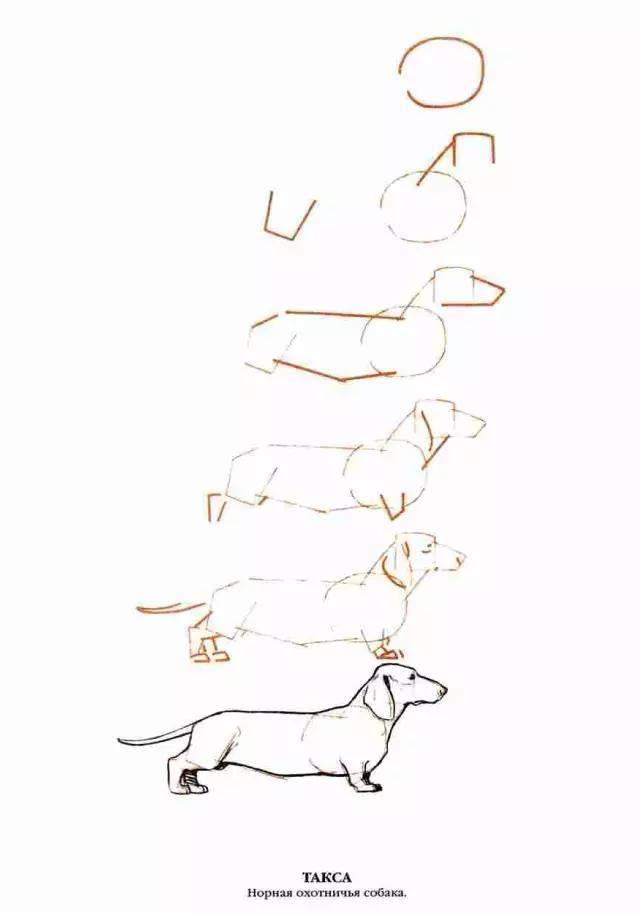 ТАКСА
Норная охотничья собака.